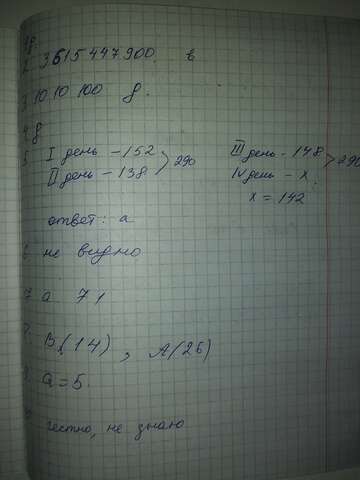 1 g.
2. 3615447900. в
3 1010100 g.
4 g
5. I день - 152 > 290 III день - 148 > 290
II день - 138 IV день - x.
x = 142
ответ: а
6 не видно
7 а 71
7. B(14), A(26)
8. a = 5.
честно, не знаю